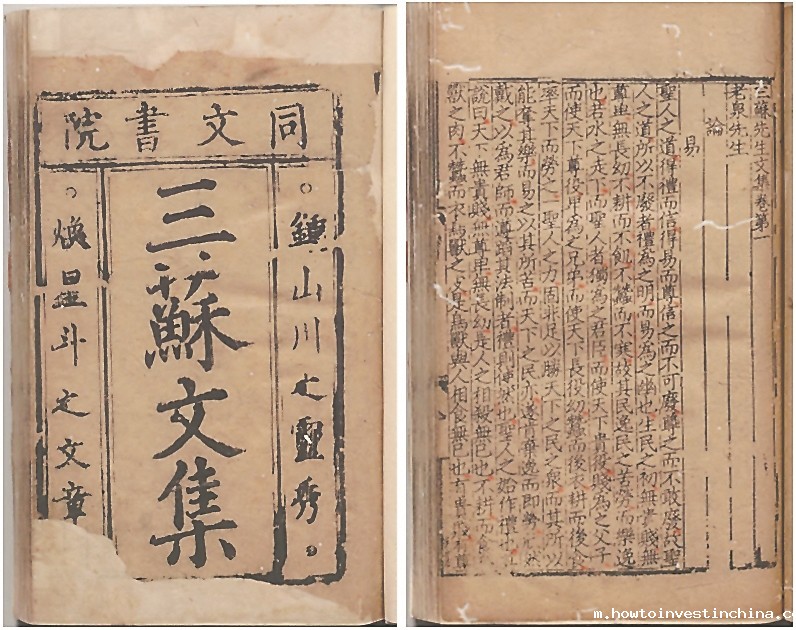 同文書院
鍾山川之靈秀
三蘇文集
煥星斗之文章
三蘇先生文集卷第一
老泉先生
論
易
聖人之道得禮而信得易而尊信之而不可廢尊之而不敢廢故聖
人之道所以不廢者禮為之明而易為之幽也生民之初無貴賤無
尊卑無長幼不耕而不飢不蠶而不寒故其民逸民之苦勞而樂逸
也若水之走下而聖人者獨為之君臣而使天下貴役賤為之父子
而使天下尊役卑為之兄弟而使天下長役幼蠶而後衣耕而後食
率天下而勞之一聖人之力固非足以勝天下之民之衆而其所以
能奪其樂而易之以其所苦而天下之民亦遂肯棄逸而即勞然
戴之以為君師而遵蹈其法制者禮則使然也聖人之始作禮
說曰天下無貴賤無尊卑無長幼是人之相殺無已也不耕而食
獸之肉不蠶而衣鳥獸之皮是鳥獸與人相食無已也有貴
m.howtoinvestinchina.c